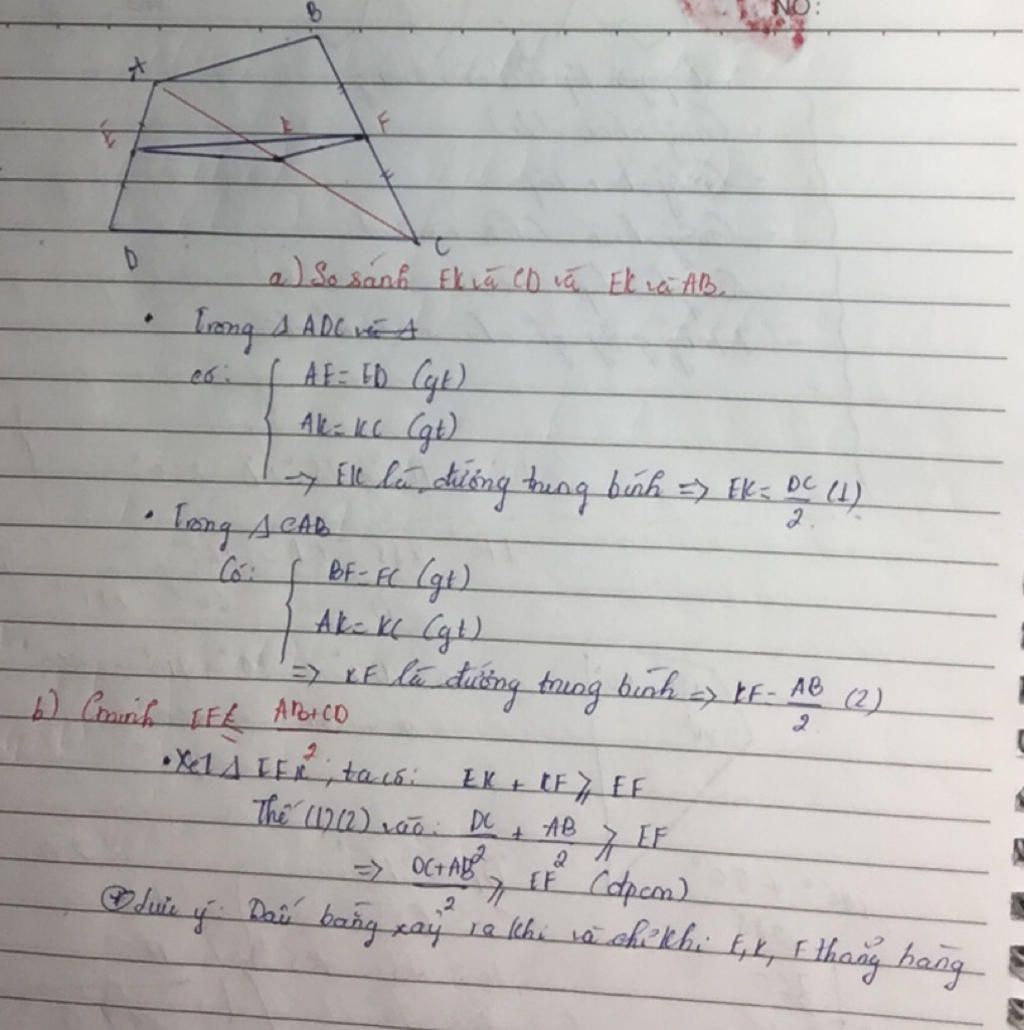 NO:
B
A
E
K
F
D
C
a) So sánh EK và CD và EK và AB.
• Trong Δ ADC và Δ
có: { AE = ED (gt)
AK = KC (gt)
=> EK là đường trung bình => EK = DC/2 (1)
• Trong Δ CAB
Có: { BF = FC (gt)
AK = KC (gt)
=> KF là đường trung bình => KF = AB/2 (2)
b) Cminh EF ≤ AB+CD/2
• Xét Δ EFK, ta có: EK + KF ⩾ EF
Thế (1)(2) vào: DC/2 + AB/2 ⩾ EF
=> DC+AB/2 ⩾ EF (đpcm)
ý: Dấu bằng xảy ra khi và chỉ khi E, K, F thẳng hàng